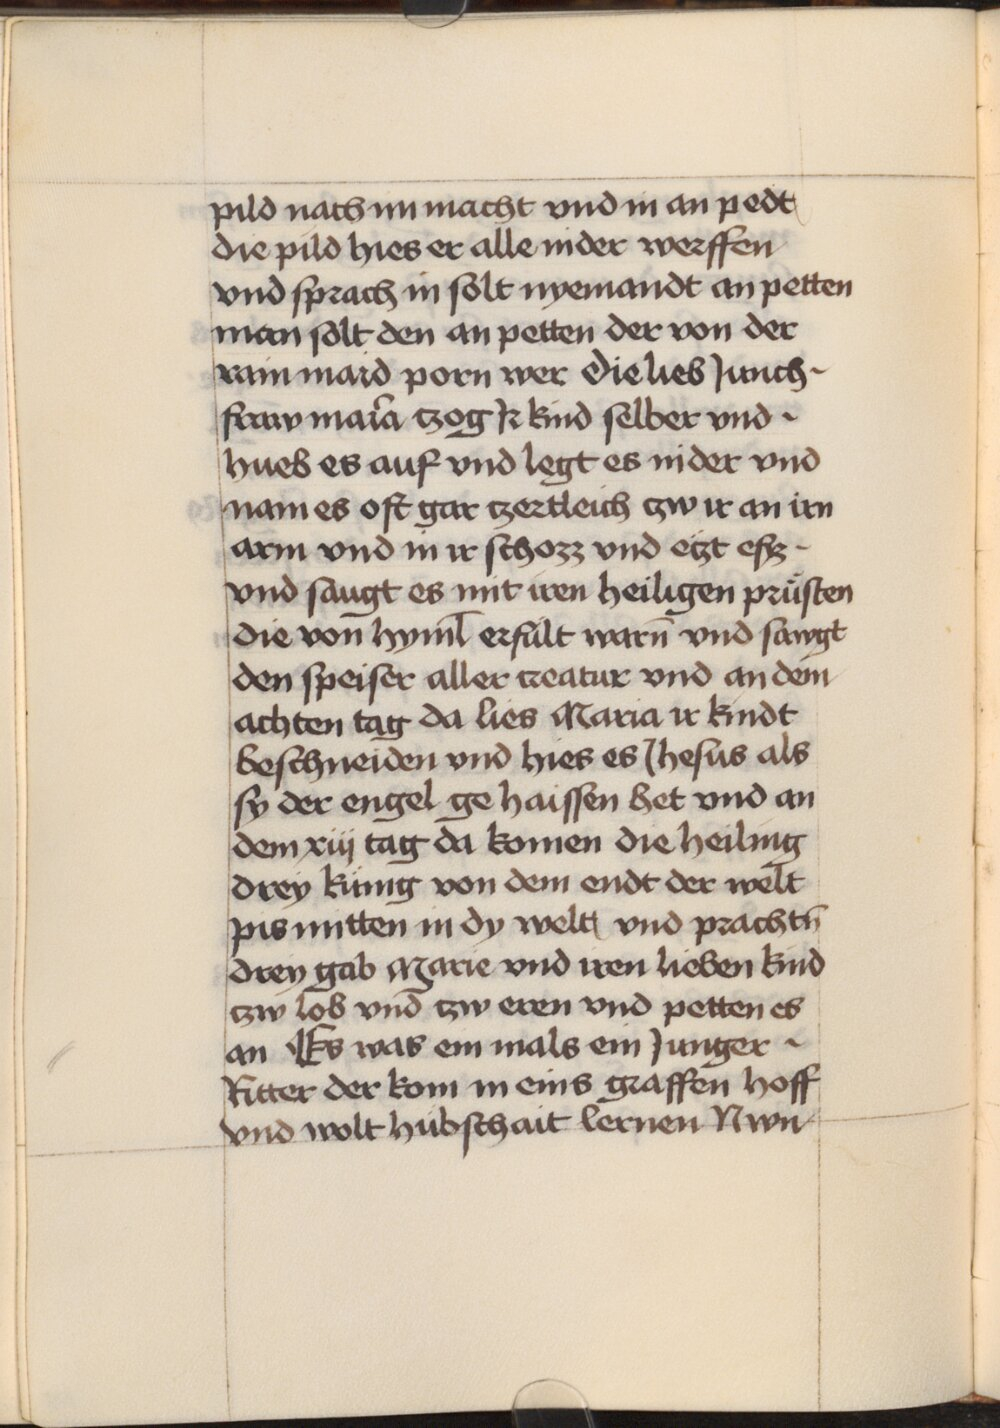 pild nach im macht vnd in an pedt
die pild hies er alle nider werffen
vnd sprach in solt nyemandt an petten
man solt den an petten der von der
rain maid porn wer Die lieb Junch-
fraw maria czog Jr kind selber vnd -
hueb es auf vnd legt es nider vnd
nam es oft gar czertleich czw ir an irn
arm vnd in ir schozz vnd eczt esz -
vnd saugt es mit iren heiligen prüsten
die von̄ hyml̄ erfült warn̄ vnd sawgt
den speiser aller creatur vnd an dem
achten tag da lies Maria ir kindt
beschneiden vnd hies es Jhesus als
sy der engel ge haissen het vnd an
dem xiij tag da komen die heiling
drey künig von dem endt der welt
pis mitten in dy welt vnd prachtn̄
drey gab Marie vnd iren lieben kind
czw lob vnd czw eren vnd petten es
an Es was ein mals ein Junger -
Ritter der kom in eins graffen hoff
vnd wolt hübschait lernen Nwn